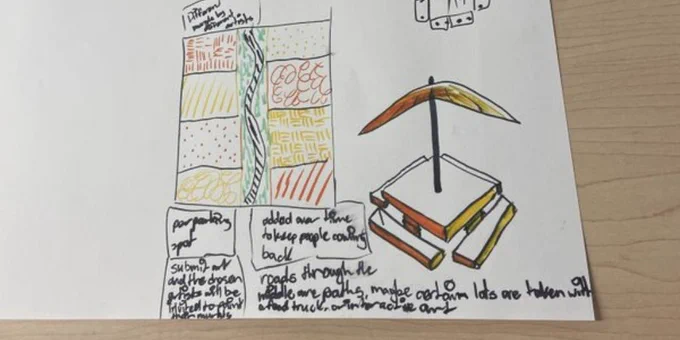 Different
murals by
different
artists
per parking
spot
added over time
to keep people coming
back
submit art
and the chosen
artists will be
invited to paint
their murals
roads through the
middle are paths, maybe certain lots are taken with
a food truck, or interactive art